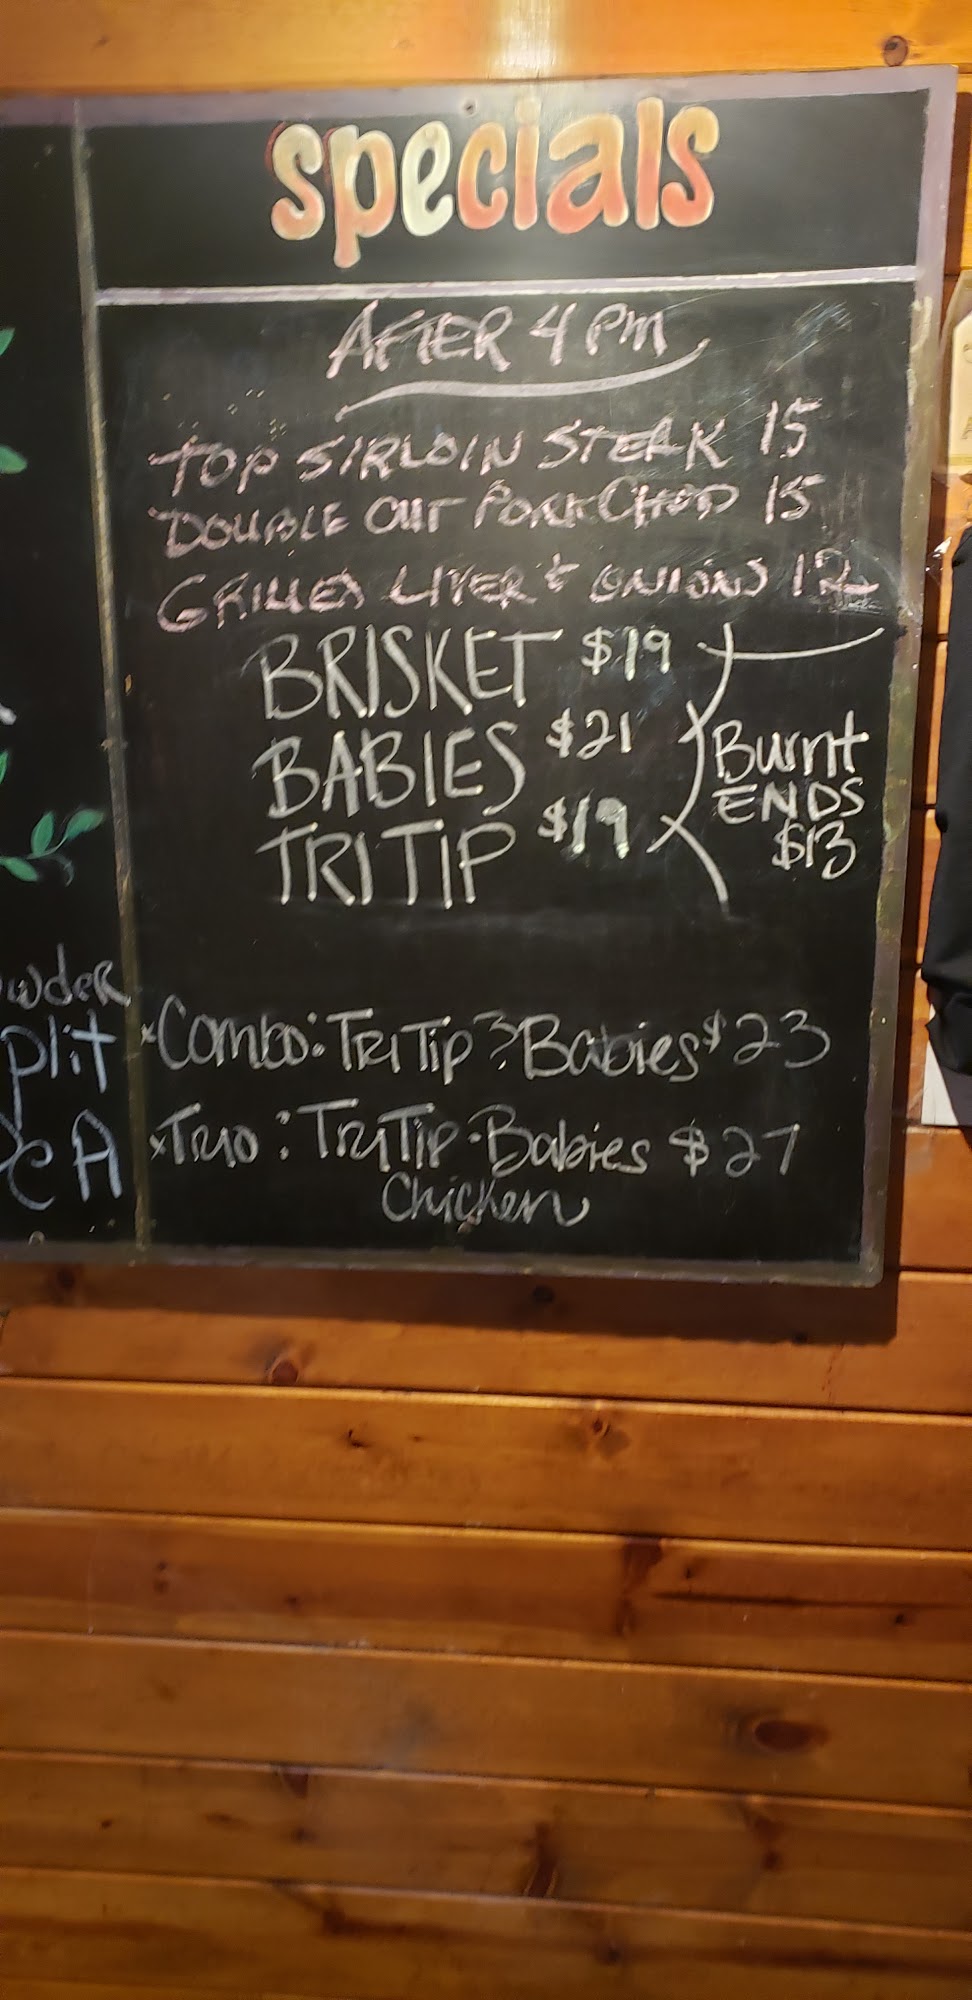 specials
AFTER 4 PM
TOP SIRLOIN STEAK 15
DOUBLE CUT PORK CHOP 15
GRILLED LIVER & ONIONS 12
BRISKET $19
BABIES $21
TRI TIP $19
Burnt
ENDS
$13
*Combo: Tri Tip & Babies $23
*Trio: Tri Tip · Babies $27
Chicken
wder
plit
A